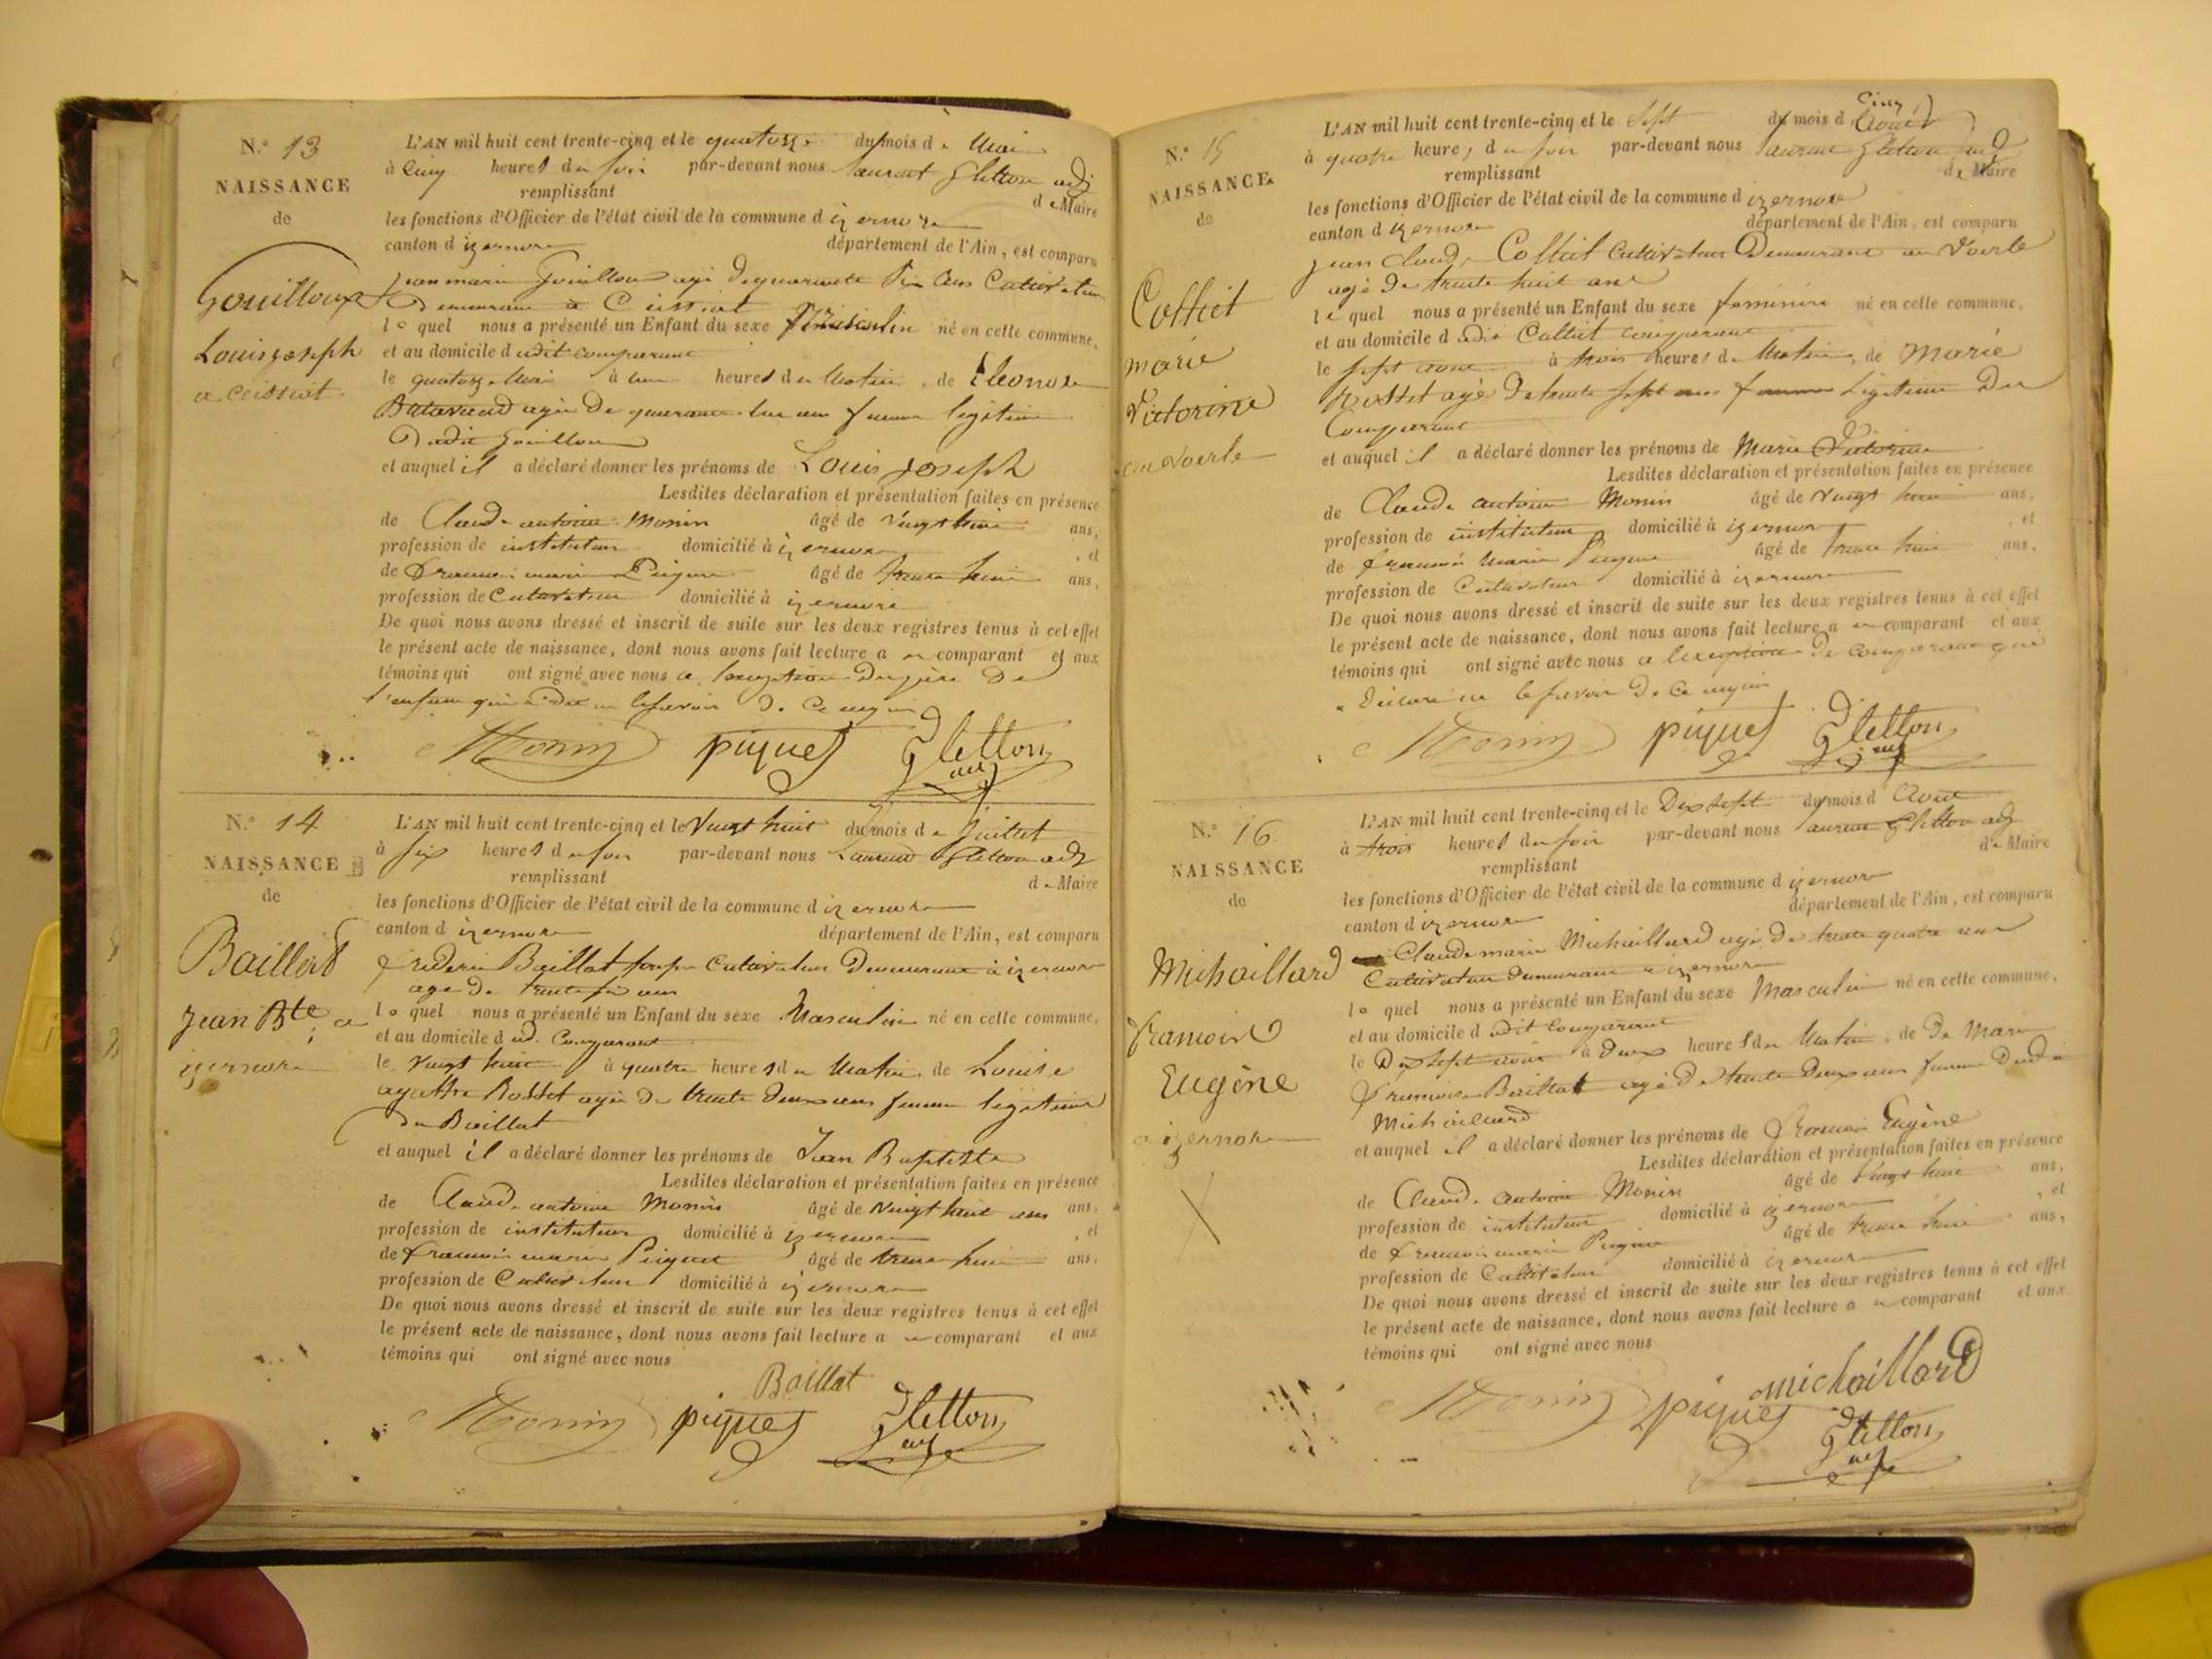 N.º 13
NAISSANCE
de
Gouilloux
Louis joseph
a ceissiat
L'AN mil huit cent trente-cinq et le quatorze du mois de Mai
à Cinq heures du soir par-devant nous laurent Gletton adj
remplissant d e Maire
les fonctions d'Officier de l'état civil de la commune d izernore
canton d izernore département de l'Ain, est comparu
jean marie Gouilloux agé de quarante six ans Cultivateur
Demeurant a Ceissiat
le quel nous a présenté un Enfant du sexe Masculin né en cette commune,
et au domicile dudit comparant
le quatorze Mai à heures du Matin, de Eleonore
agée de quarante un ans femme legitime
Dudit Gouilloux
et auquel il a déclaré donner les prénoms de Louis joseph
Lesdites déclaration et présentation faites en présence
de Claude antoine Monin âgé de vingt huit ans,
profession de instituteur domicilié à izernore , et
de francois marie Piquet âgé de trente huit ans,
profession de Cultivateur domicilié à izernore
De quoi nous avons dressé et inscrit de suite sur les deux registres tenus à cet effet
le présent acte de naissance, dont nous avons fait lecture a u comparant et aux
témoins qui ont signé avec nous a lexception du père De
l'enfant qui a dit ne le savoir De ce enquis
Monin piquet Gletton
adj
N.º 14
NAISSANCE
de
Baillat
jean Bte, a
izernore
L'AN mil huit cent trente-cinq et le Vingt huit du mois de Juillet
à six heures du soir par-devant nous Laurent Gletton adj
remplissant d e Maire
les fonctions d'Officier de l'état civil de la commune d izernore
canton d izernore département de l'Ain, est comparu
frederic Baillat Cultivateur Demeurant à izernore
agé de trente six ans
le quel nous a présenté un Enfant du sexe Masculin né en cette commune,
et au domicile dud. Comparant
le vingt huit à quatre heures du Matin, de Louise
agathe Rosset agée de trente deux ans femme legitime
du Baillat
et auquel il a déclaré donner les prénoms de Jean Baptiste
Lesdites déclaration et présentation faites en présence
de Claude antoine Monin âgé de vingt huit ans ans,
profession de instituteur domicilié à izernore , et
de francois marie Piquet âgé de trente huit ans,
profession de Cultivateur domicilié à izernore
De quoi nous avons dressé et inscrit de suite sur les deux registres tenus à cet effet
le présent acte de naissance, dont nous avons fait lecture a u comparant et aux
témoins qui ont signé avec nous
Baillat
Monin piquet Gletton
adj
N.º 15
NAISSANCE
de
Collet
marie
Victorine
au voerle
cinq
L'AN mil huit cent trente-cinq et le sept du mois d Août
à quatre heures du soir par-devant nous laurent Gletton adj
remplissant de Maire
les fonctions d'Officier de l'état civil de la commune d izernore
canton d izernore département de l'Ain, est comparu
jean claude Collet Cultivateur Demeurant au Voerle
agé de trente huit ans
le quel nous a présenté un Enfant du sexe feminin né en cette commune,
et au domicile dudit Collet comparant
le sept aout à trois heures du Matin, de Marie
Rosset agée de trente sept ans femme Legitime Du
Comparant
et auquel il a déclaré donner les prénoms de Marie Victorine
Lesdites déclaration et présentation faites en présence
de Claude antoine Monin âgé de vingt huit ans,
profession de instituteur domicilié à izernore , et
de francois Marie Piquet âgé de trente huit ans,
profession de Cultivateur domicilié à izernore
De quoi nous avons dressé et inscrit de suite sur les deux registres tenus à cet effet
le présent acte de naissance, dont nous avons fait lecture a u comparant et aux
témoins qui ont signé avec nous a lexception du comparant qui
a Déclaré ne le savoir De ce enquis
Monin piquet Gletton
adj
N.º 16
NAISSANCE
de
Michaillard
francois
Eugène
a izernore
L'AN mil huit cent trente-cinq et le Dix sept du mois d Aout
à trois heures du soir par-devant nous laurent Gletton adj
remplissant de Maire
les fonctions d'Officier de l'état civil de la commune d izernore
canton d izernore département de l'Ain, est comparu
Claude marie Michaillard agé de trente quatre ans
Cultivateur demeurant a izernore
le quel nous a présenté un Enfant du sexe Masculin né en cette commune,
et au domicile dudit Comparant
le Dix sept aout à deux heures du Matin, de De Marie
francoise Baillat agée de trente deux ans femme Dudit
Michaillard
et auquel il a déclaré donner les prénoms de francois Eugène
Lesdites déclaration et présentation faites en présence
de Claude antoine Monin âgé de vingt huit ans,
profession de instituteur domicilié à izernore , et
de francois marie Piquet âgé de trente huit ans,
profession de Cultivateur domicilié à izernore
De quoi nous avons dressé et inscrit de suite sur les deux registres tenus à cet effet
le présent acte de naissance, dont nous avons fait lecture a u comparant et aux
témoins qui ont signé avec nous
michaillard
Monin piquet Gletton
adj